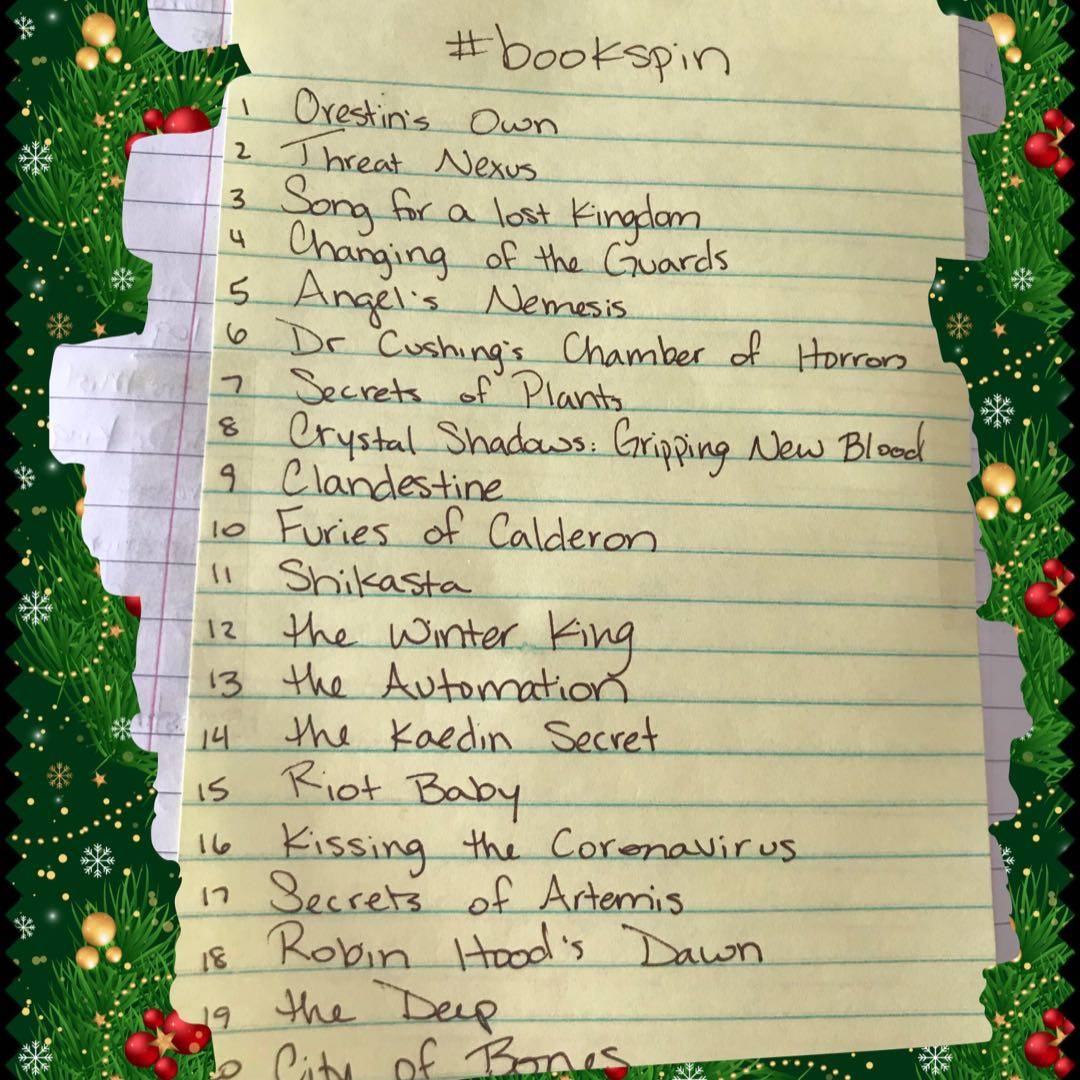 #bookspin
1 Orestin's Own
2 Threat Nexus
3 Song for a lost Kingdom
4 Changing of the Guards
5 Angel's Nemesis
6 Dr Cushing's Chamber of Horrors
7 Secrets of Plants
8 Crystal Shadows: Gripping New Blood
9 Clandestine
10 Furies of Calderon
11 Shikasta
12 the Winter King
13 the Automation
14 the Kaedin Secret
15 Riot Baby
16 Kissing the Coronavirus
17 Secrets of Artemis
18 Robin Hood's Dawn
19 the Deep
City of Bones